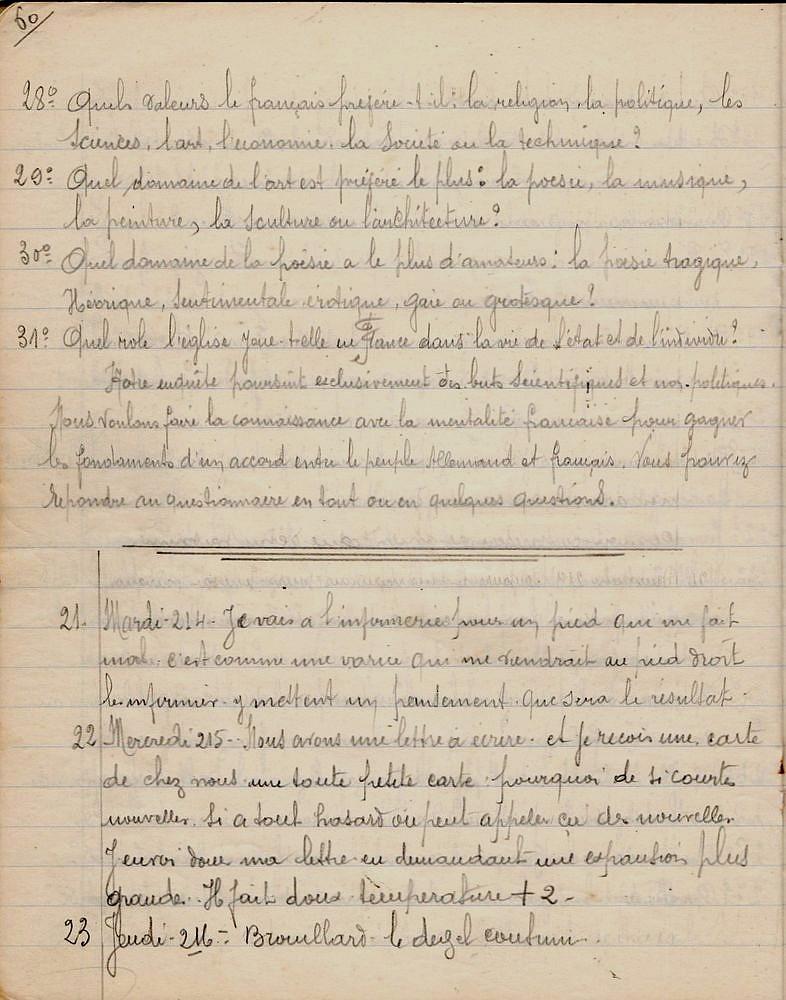 60
28° Quels valeurs le français prefére-t-il: la religion, la politique, les
Sciences, l'art, l'economie, la Societé ou la technique?
29° Quel domaine de l'art est préféré le plus: la poesie, la musique,
la peinture, la Sculture ou l'architecture?
30° Quel domaine de la poésie a le plus d'amateurs: la poesie tragique,
Héroique, Sentimentale érotique, gaie ou grotesque?
31° Quel role l'église Joue-t-elle en France dans la vie de l'état et de l'individu?
Notre enquête poursuit exclusivement des buts Scientifiques et non politiques.
Nous voulons faire la connaissance avec la mentalité française pour gagner
les fondaments d'un accord entre le peuple Allemand et français. Vous pouvez
repondre au questionnaire en tout ou en quelques questions.
21. Mardi-214- Je vais a l'infirmerie pour un pied qui me fait
mal. c'est comme une varice qui me viendrait au pied droit
les infirmier y mettent un pansement. que sera le résultat.
22 Mercredi 215- Nous avons une lettre à écrire. et Je recois une carte
de chez nous une toute petite carte. pourquoi de si courtes
nouvelles. Si a tout hasard on peut appeler ça des nouvelles
J envoi donc ma lettre en demandant une expansion plus
grande. Il fait doux température + 2-
23 Jeudi-216- Brouillard- le degel continu.